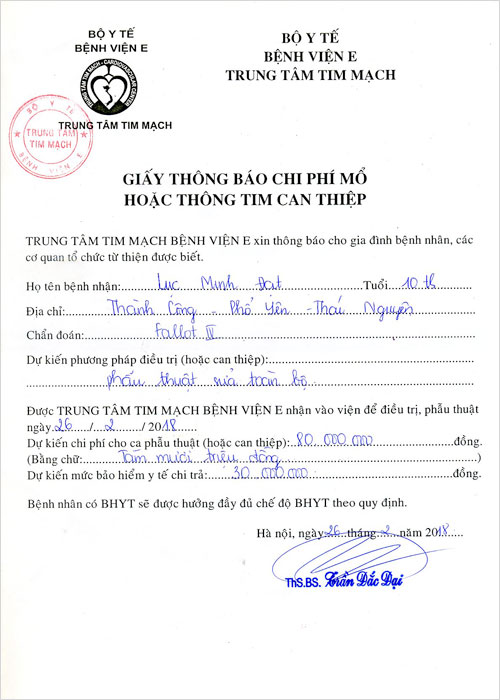 BỘ Y TẾ
BỆNH VIỆN E
TRUNG TÂM TIM MẠCH - CARDIOVASCULAR CENTER
TRUNG TÂM TIM MẠCH
BỘ Y TẾ
BỆNH VIỆN E
TRUNG TÂM TIM MẠCH
BỘ Y TẾ
TRUNG TÂM
TIM MẠCH
BỆNH VIỆN E
GIẤY THÔNG BÁO CHI PHÍ MỔ
HOẶC THÔNG TIM CAN THIỆP
TRUNG TÂM TIM MẠCH BỆNH VIỆN E xin thông báo cho gia đình bệnh nhân, các
cơ quan tổ chức từ thiện được biết.
Họ tên bệnh nhân: Lục Minh Đạt Tuổi: 10 th
Địa chỉ: Thành Công - Phổ Yên - Thái Nguyên
Chẩn đoán: Fallot IV
Dự kiến phương pháp điều trị (hoặc can thiệp):
phẫu thuật sửa toàn bộ
Được TRUNG TÂM TIM MẠCH BỆNH VIỆN E nhận vào viện để điều trị, phẫu thuật
ngày 26 / 2 / 2018
Dự kiến chi phí cho ca phẫu thuật (hoặc can thiệp): 80 000 000 đồng.
(Bằng chữ: Tám mươi triệu đồng
Dự kiến mức bảo hiểm y tế chi trả: 30 000 000 đồng.
Bệnh nhân có BHYT sẽ được hưởng đầy đủ chế độ BHYT theo quy định.
Hà nội, ngày 26 tháng 2 năm 2018
ThS.BS. Trần Đắc Đại